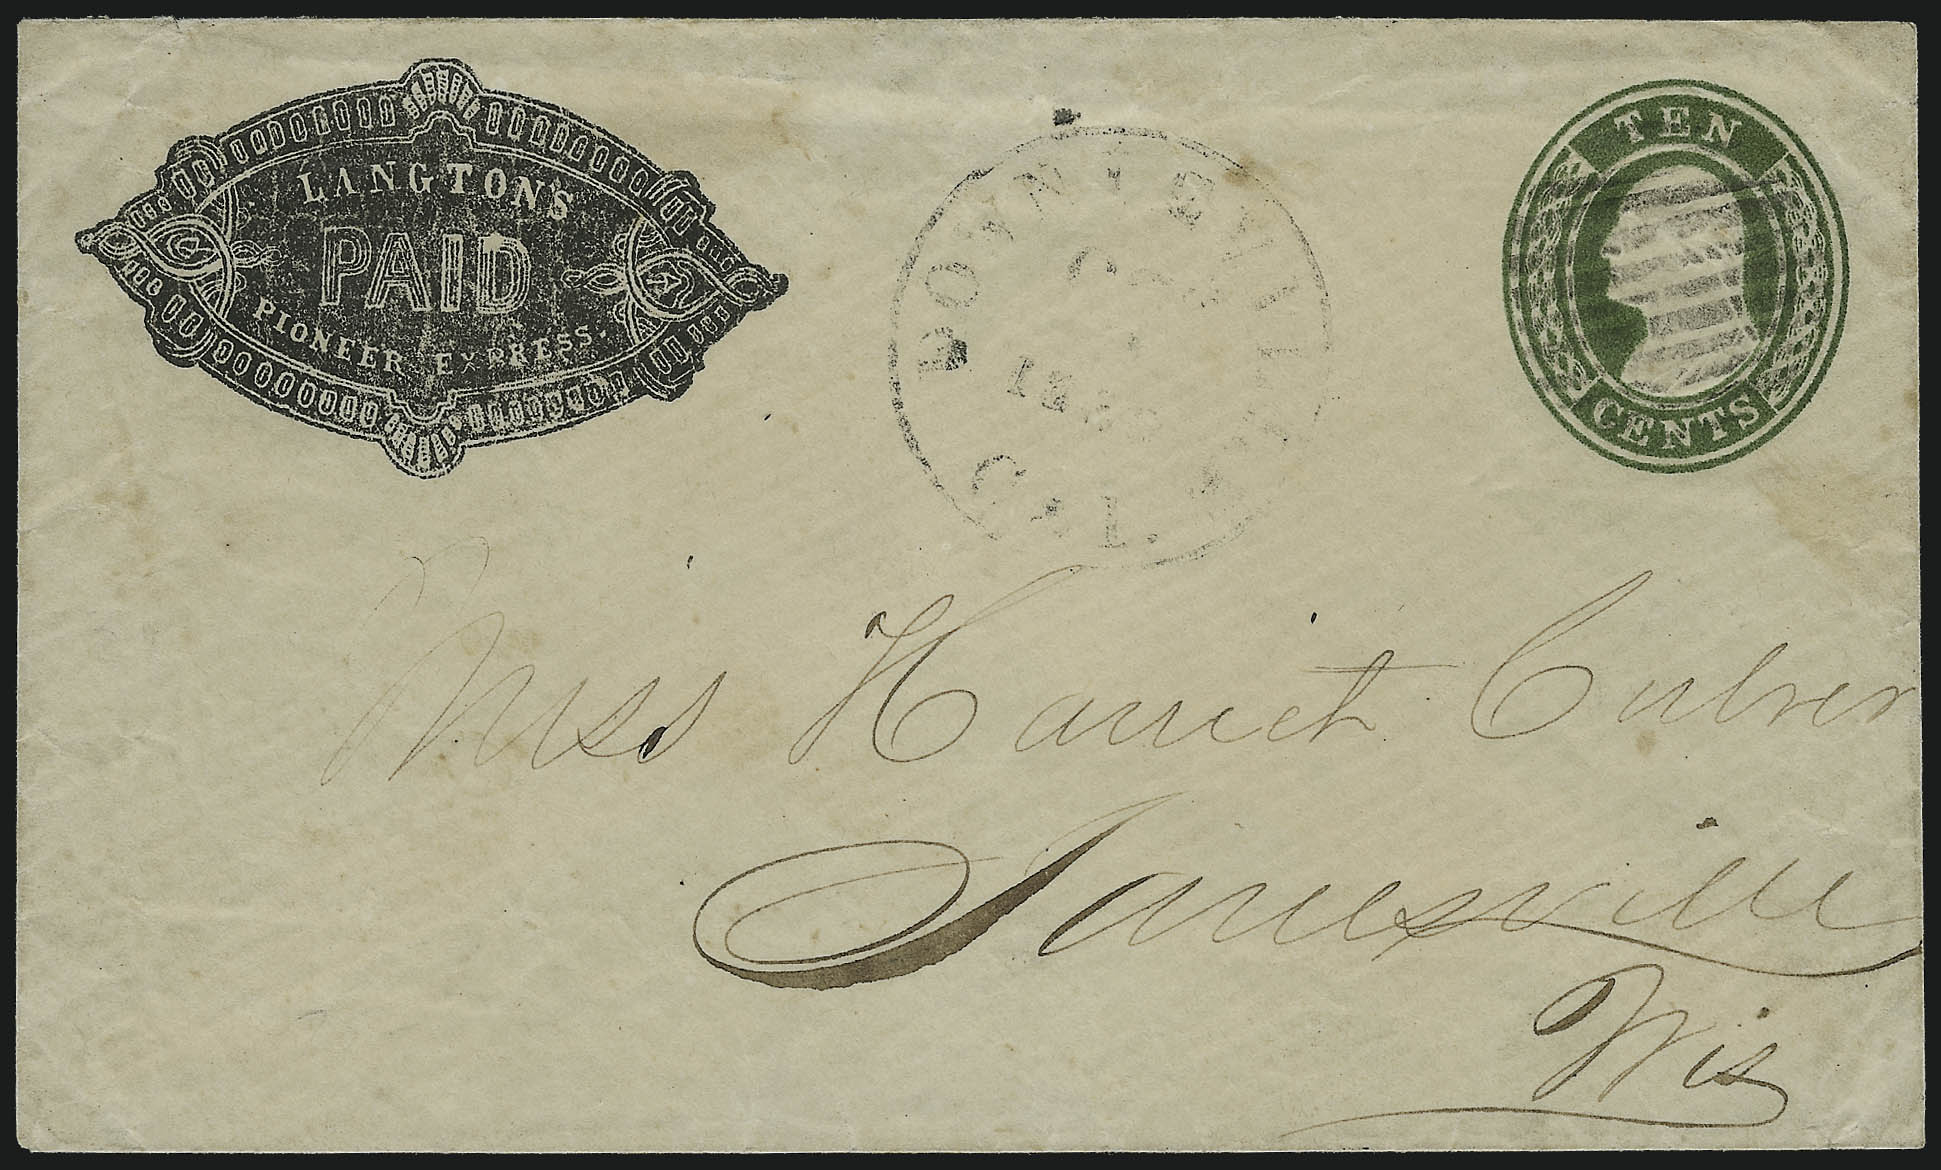 LANGTON'S
PAID
PIONEER EXPRESS.
DOWNIEVILLE
CAL.
TEN
CENTS
Miss Harriet Culver
Janesville
Wis